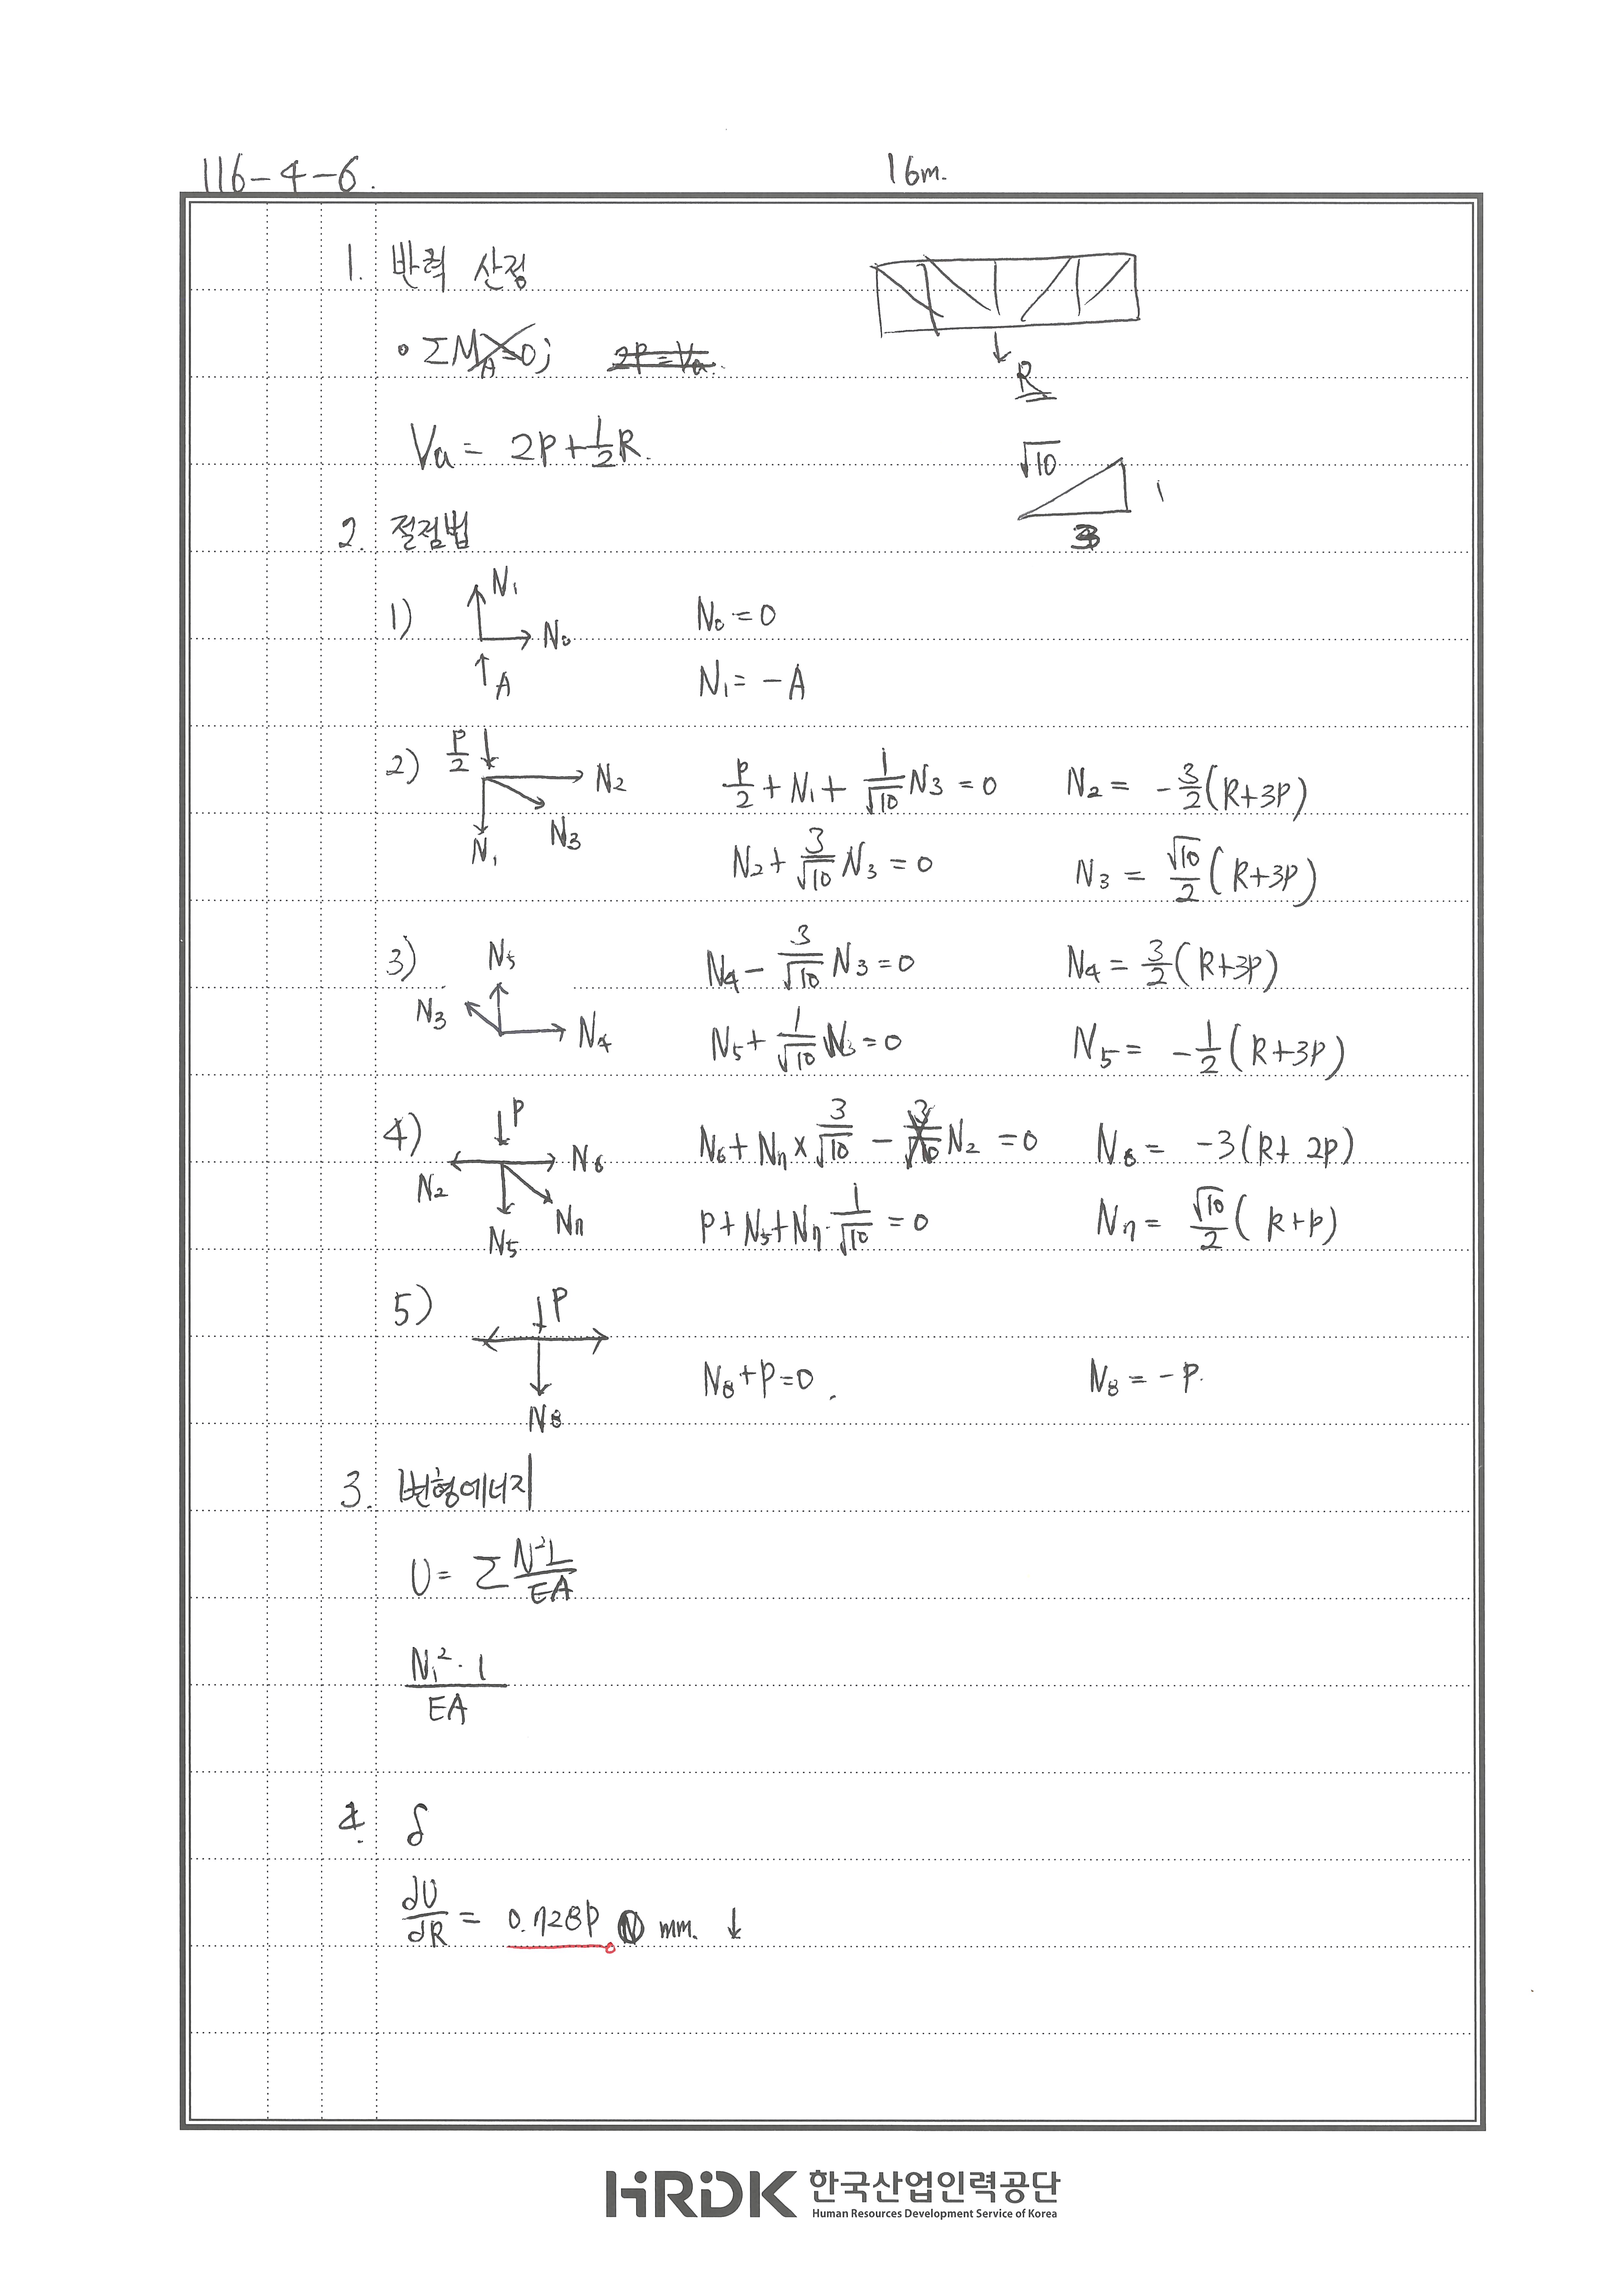 116-4-6.
16m.
1. 반력 산정
• ΣM_A=0; 2P=Va.
R
Va = 2P+1/2R.
√10
1
3
2. 절점법
1) N₁ N₀ A
N₀ = 0
N₁ = -A
2) P/2 N₂ N₃ N₁
P/2 + N₁ + 1/√10 N₃ = 0 N₂ = -3/2(R+3P)
N₂ + 3/√10 N₃ = 0 N₃ = √10/2(R+3P)
3) N₅ N₃ N₄
N₄ - 3/√10 N₃ = 0 N₄ = 3/2(R+3P)
N₅ + 1/√10 N₃ = 0 N₅ = -1/2(R+3P)
4) P N₂ N₆ N₅ N₇
N₆ + N₇ × 3/√10 - N₂ = 0 N₆ = -3(R+2P)
P + N₅ + N₇ · 1/√10 = 0 N₇ = √10/2(R+P)
5) P N₈
N₈+P=0. N₈ = -P.
3. 변형에너지
U = Σ N²L/EA
N₁²·1/EA
4. δ
dU/dR = 0.728P mm. ↓
HRDK 한국산업인력공단
Human Resources Development Service of Korea